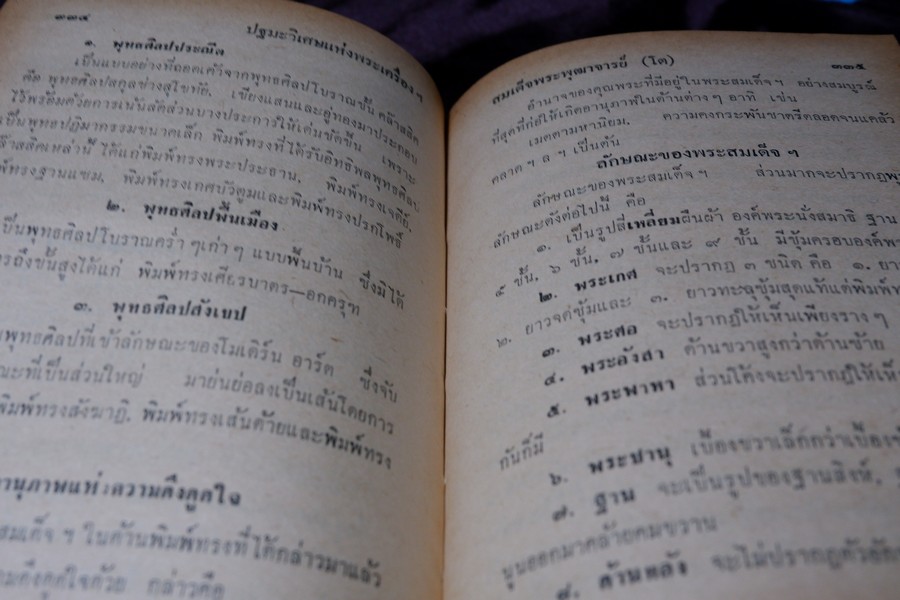 ๓๓๔
ปฐมะวิเศษแห่งพระเครื่อง ฯ
๑. พุทธศิลปประณีต
เป็นแบบอย่างที่ถอดเค้าจากพุทธศิลปโบราณชั้น คล้าสสิค
คือ พุทธศิลปสกุลช่างสุโขทัย, เชียงแสนและอู่ทองมาประกอบ
ไว้พร้อมด้วยการเน้นสัดส่วนบางประการให้เด่นชัดขึ้น เพราะ
เป็นพุทธปฏิมากรรมขนาดเล็ก พิมพ์ทรงที่ได้รับอิทธิพลพุทธศิลป
ล้าสสิคเหล่านี้ ได้แก่พิมพ์ทรงพระประธาน, พิมพ์ทรงเจดีย์,
พิมพ์ทรงฐานแซม, พิมพ์ทรงเกศบัวตูมและพิมพ์ทรงปรกโพธิ์
๒. พุทธศิลปพื้นเมือง
เป็นพุทธศิลปโบราณคร่ำ ๆ เก่า ๆ แบบพื้นบ้าน ซึ่งมิได้
ถึงขั้นสูงได้แก่ พิมพ์ทรงเศียรบาตร—อกครุฑ
๓. พุทธศิลปสังเขป
พุทธศิลปที่เข้าลักษณะของโมเดิร์น อาร์ต ซึ่งจับ
ณะที่เป็นส่วนใหญ่ มาย่นย่อลงเป็นเส้นโดยการ
พิมพ์ทรงสังฆาฏิ, พิมพ์ทรงเส้นด้ายและพิมพ์ทรง
านุภาพแห่งความดึงดูดใจ
สมเด็จ ฯ ในด้านพิมพ์ทรงที่ได้กล่าวมาแล้ว
ามดึงดูดใจด้วย กล่าวคือ
สมเด็จพระพุฒาจารย์ (โต)
๓๓๕
อำนาจของคุณพระที่มีอยู่ในพระสมเด็จ ฯ อย่างสมบูรณ์
ที่สุดที่ก่อให้เกิดอานุภาพในด้านต่าง ๆ อาทิ เช่น
เมตตามหานิยม, ความคงกระพันชาตรีตลอดจนแคล้ว
คลาด ฯ ล ฯ เป็นต้น
ลักษณะของพระสมเด็จ ฯ
ลักษณะของพระสมเด็จ ฯ ส่วนมากจะปรากฏ
ลักษณะดังต่อไปนี้ คือ
๑. เป็นรูปสี่เหลี่ยมผืนผ้า องค์พระนั่งสมาธิ ฐาน
๕ ชั้น, ๖ ชั้น, ๗ ชั้นและ ๙ ชั้น มีซุ้มครอบองค์พระ
๒. พระเกศ จะปรากฏ ๓ ชนิด คือ ๑. ยา
๒. ยาวจดซุ้มและ ๓. ยาวทะลุซุ้มสุดแท้แต่พิมพ์ท
๓. พระศอ จะปรากฏให้เห็นเพียงราง ๆ
๔. พระอังสา ด้านขวาสูงกว่าด้านซ้าย
๕. พระพาหา ส่วนโค้งจะปรากฏให้เห็
กันก็มี
๖. พระชานุ เบื้องขวาเล็กกว่าเบื้อง
๗. ฐาน จะเป็นรูปของฐานสิงห์,
นูนออกมาคล้ายคมขวาน
๘. ด้านหลัง จะไม่ปรากฏตัวอัก